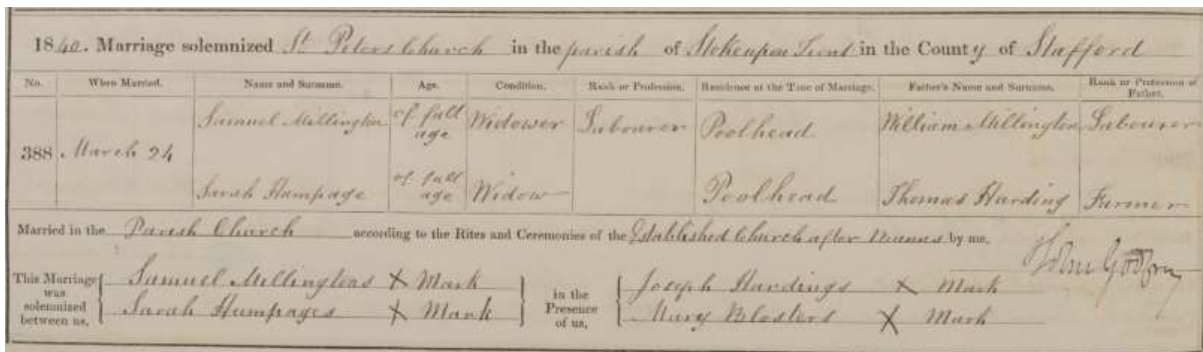 1840. Marriage solemnized St Peters Church in the parish of Stoke upon Trent in the County of Stafford
No. When Married. Name and Surname. Age. Condition. Rank or Profession. Residence at the Time of Marriage. Father's Name and Surname. Rank or Profession of Father.
388 March 24 Samuel Millington of full age Widower Labourer Poolhead William Millington Labourer
Sarah Humpage of full age Widow Poolhead Thomas Harding Farmer
Married in the Parish Church according to the Rites and Ceremonies of the Established Church after Banns by me,
This Marriage was solemnized between us, Samuel Millingtons X Mark in the Presence of us, Joseph Hardings X Mark
Sarah Humpages X Mark Mary X Mark